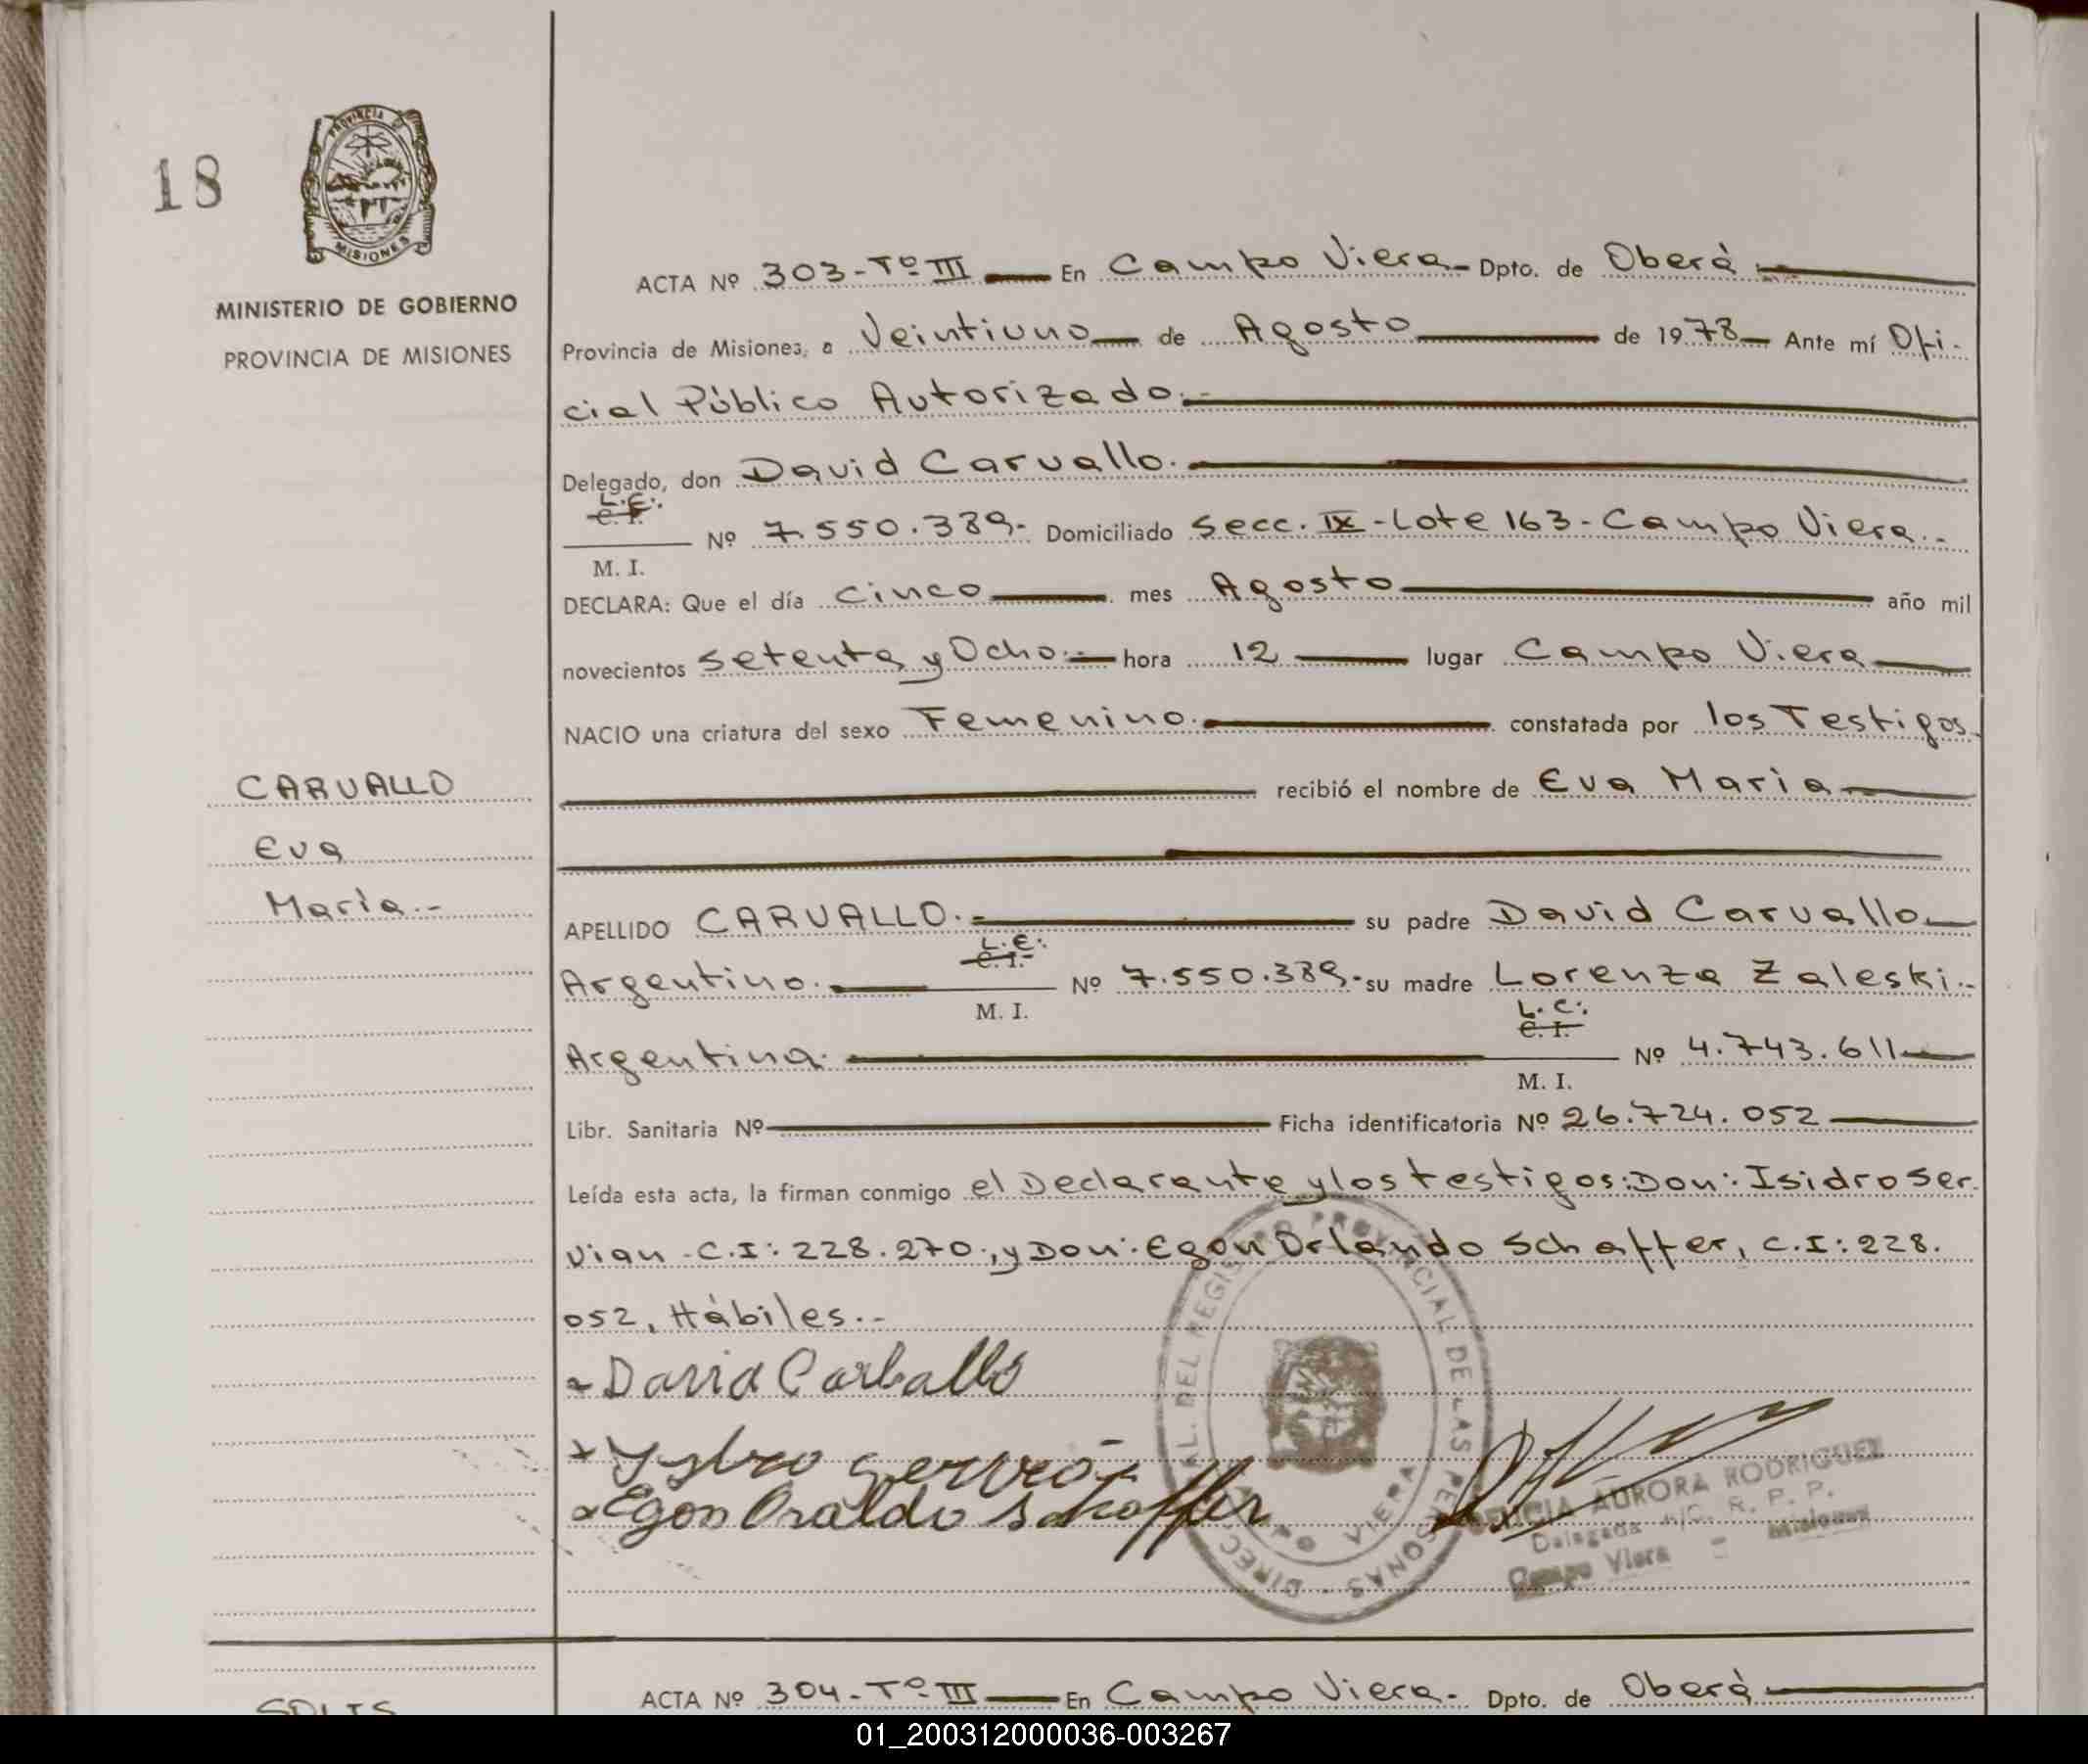 18
PROVINCIA D
MISIONES
MINISTERIO DE GOBIERNO
PROVINCIA DE MISIONES
CARVALLO
Eva
María.-
SOLIS
ACTA Nº 303-Tº III En Campo Viera Dpto. de Oberá
Provincia de Misiones, a Veintiuno de Agosto de 1978 Ante mí Ofi-
cial Público Autorizado.-
Delegado, don David Carvallo.
L.E.
C. I.
Nº 7.550.389.- Domiciliado Secc. IX - Lote 163 - Campo Viera.-
M. I.
DECLARA: Que el día Cinco mes Agosto año mil
novecientos Setenta y Ocho.- hora 12 lugar Campo Viera
NACIO una criatura del sexo Femenino. constatada por los Testigos
recibió el nombre de Eva Maria
APELLIDO CARVALLO.- su padre David Carvallo
L.E.
C. I.
Argentino. Nº 7.550.389.- su madre Lorenza Zaleski.-
M. I.
L.C.
C. I.
Argentina. Nº 4.743.611
M. I.
Libr. Sanitaria Nº Ficha identificatoria Nº 26.724.052
Leída esta acta, la firman conmigo el Declarante y los testigos: Don: Isidro Ser
vian - C.I: 228.270., y Don: Egon Orlando Schaffer, C.I: 228.
052, Hábiles.-
David Carballo
Egon Oraldo Schaffer
DIREC AL. DEL REGISTRO PROVINCIAL DE LAS PERSONAS
VIERA
AURORA RODRIGUEZ
Delegada R. P. P.
Campo Viera - Misiones
ACTA Nº 304-Tº III En Campo Viera- Dpto. de Oberá
01_200312000036-003267